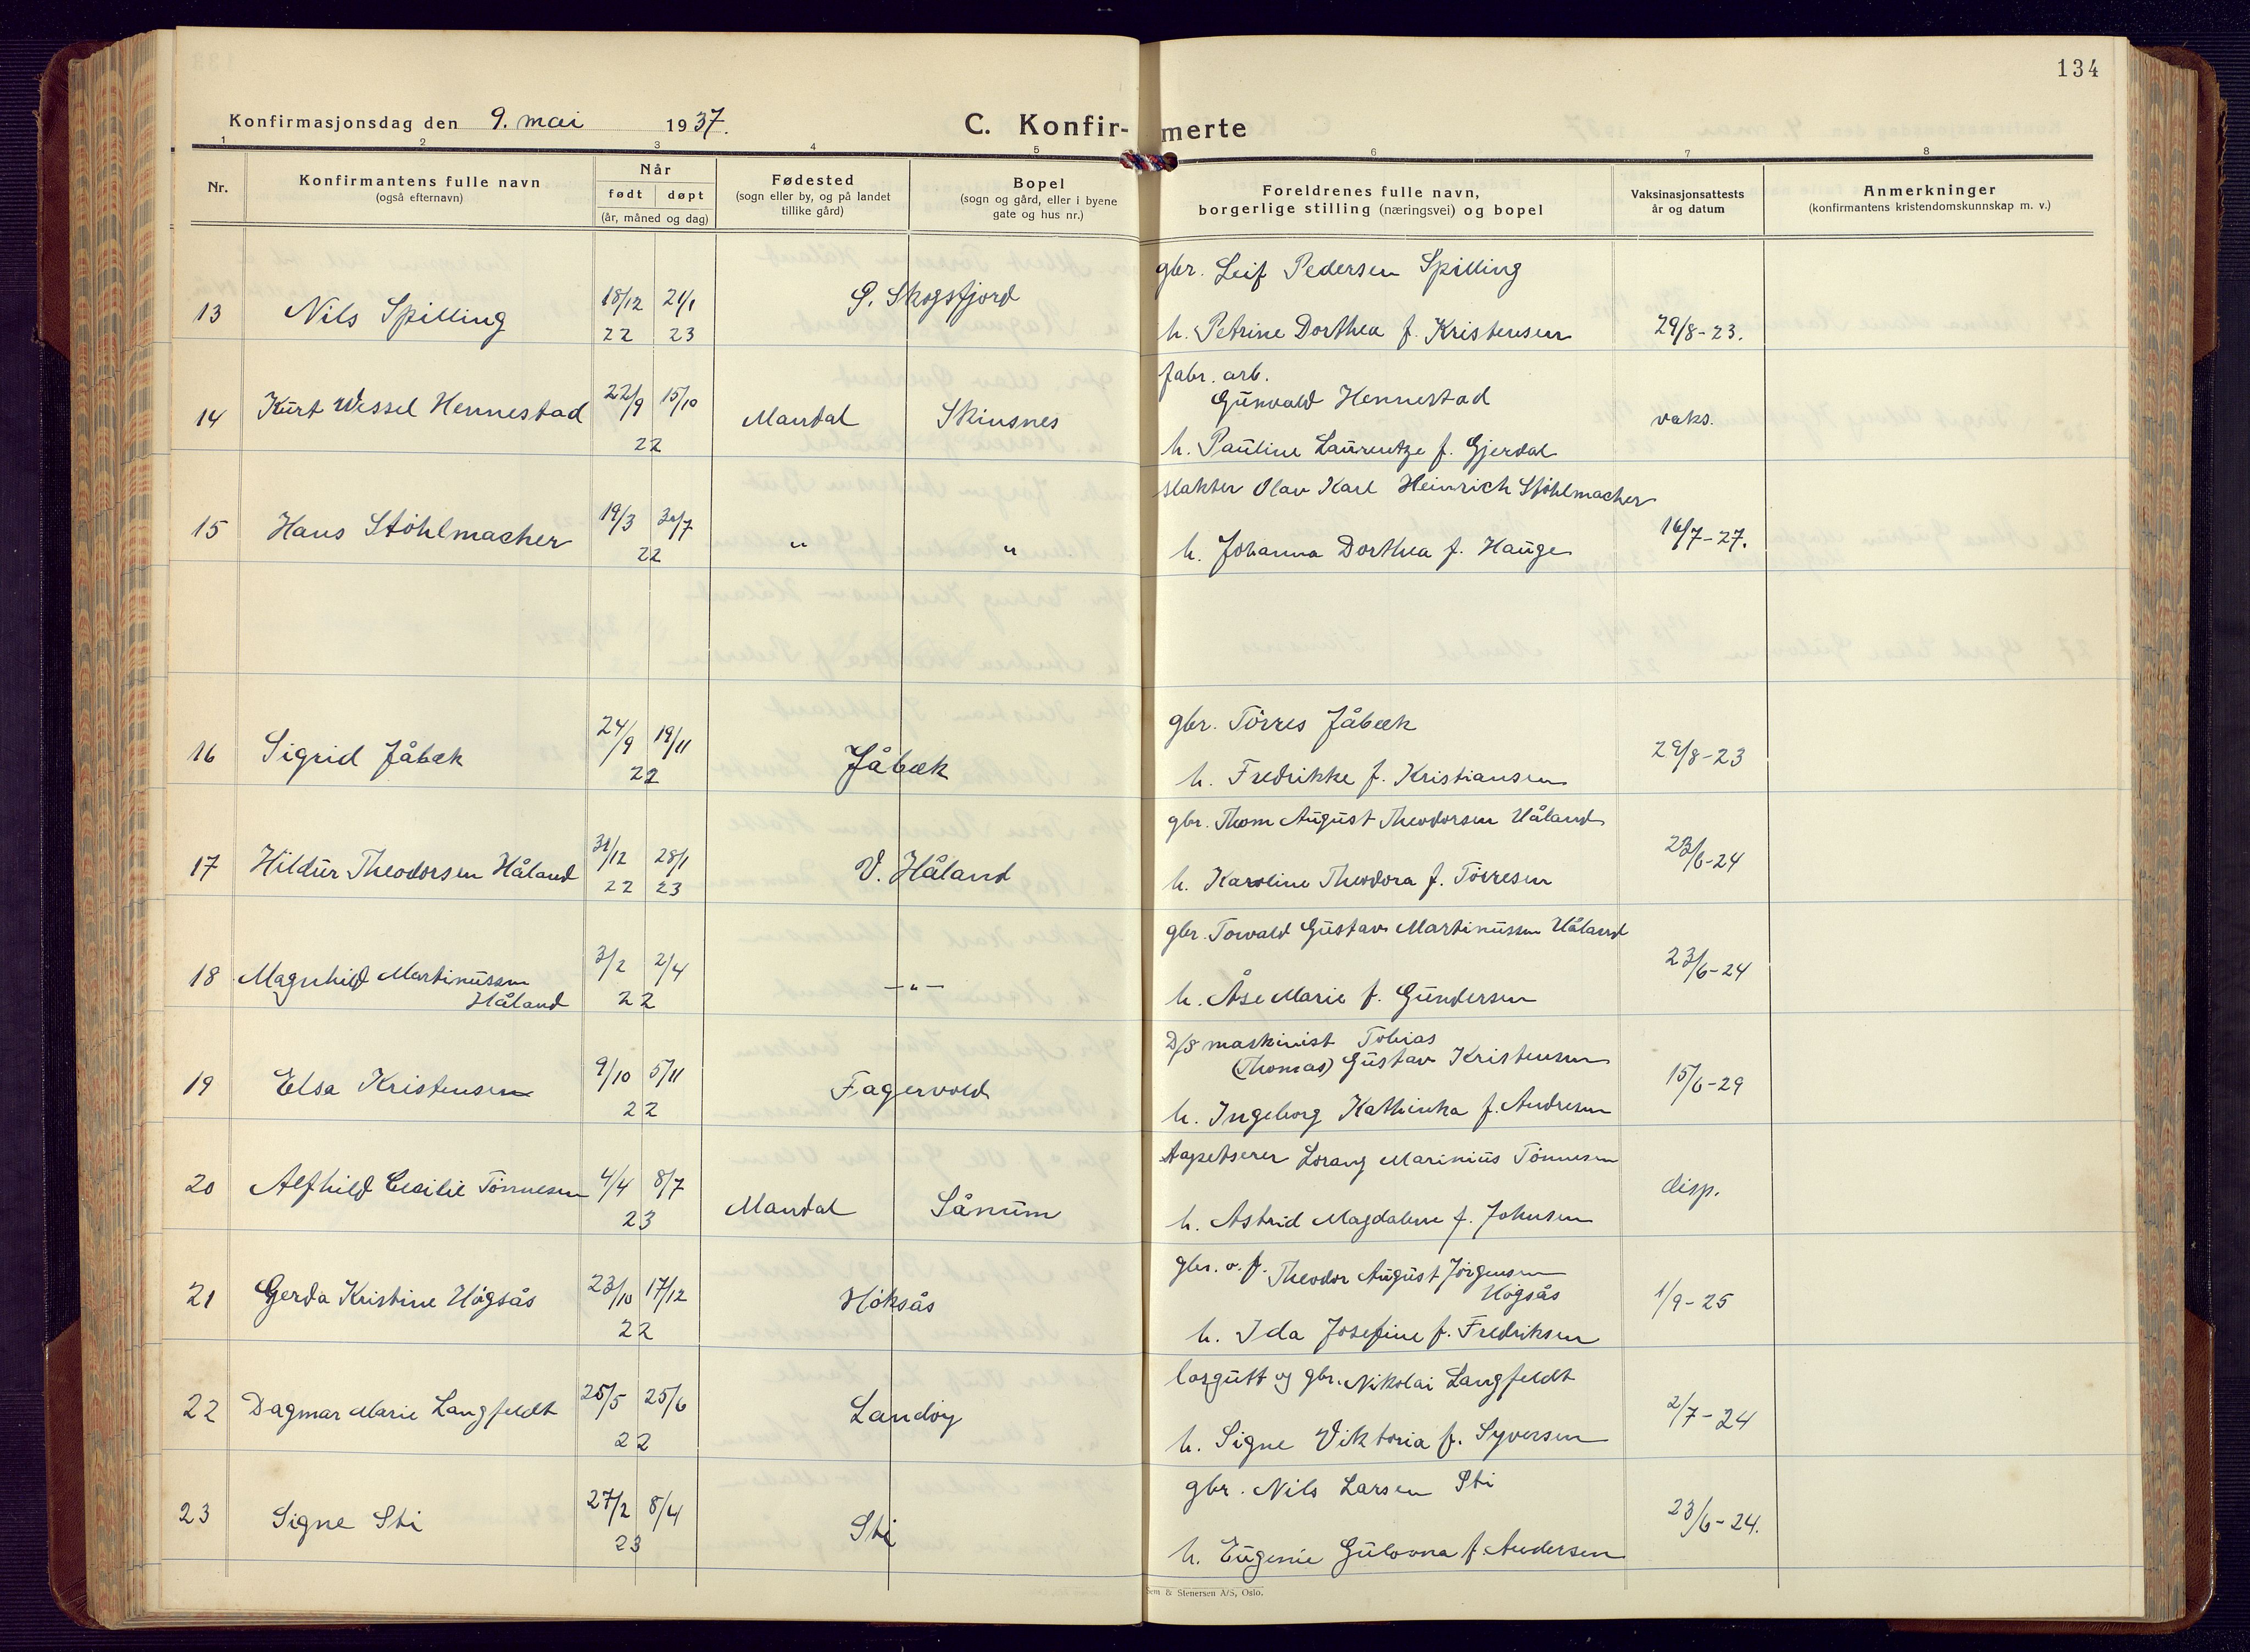 134
Konfirmasjonsdag den 9. mai 1937.
C. Konfir-merte
1 2 3 4 5 6 7 8
Nr.
Konfirmantens fulle navn
(også efternavn)
Når
født døpt
(år, måned og dag)
Fødested
(sogn eller by, og på landet
tillike gård)
Bopel
(sogn og gård, eller i byene
gate og hus nr.)
Foreldrenes fulle navn,
borgerlige stilling (næringsvei) og bopel
Vaksinasjonsattests
år og datum
Anmerkninger
(konfirmantens kristendomskunnskap m. v.)
gbr. Leif Pedersen Spilling
13 Nils Spilling 18/12 22 21/1 23 G. Skogsfjord
h. Petrine Dorthea f. Kristensen 29/8-23.
fabr. arb.
Gunvald Hennestad
14 Kurt Wessel Hennestad 22/9 15/10 22 Mandal Skinsnes vaks.
h. Pauline Laurentze f. Gjerdal
slakter Olav Karl Heinrich Stöhlmacher
15 Hans Stöhlmacher 19/3 30/7 22 " "
h. Johanna Dorthea f. Hauge 16/7-27.
gbr. Törres Jåbæk
16 Sigrid Jåbæk 24/9 19/11 22 Jåbæk 29/8-23
h. Fredrikke f. Kristiansen
gbr. Thom August Theodorsen Håland
17 Hildur Theodorsen Håland 31/12 22 28/1 23 V. Håland 23/6-24
h. Karoline Theodora f. Törresen
gbr. Torvald Gustav Martinussen Håland
18 Magnhild Martinussen
Håland 3/2 2/4 22 -"- 23/6-24
h. Åse Marie f. Gundersen
D/S maskinist Tobias
(Thomas) Gustav Kristensen
19 Elsa Kristensen 9/10 5/11 22 Fagervold 15/6-29
h. Ingeborg Kathinka f. Andresen
tapetserer Lorang Marinius Tönnesen
20 Alfhild Cecilie Tönnesen 4/4 8/7 23 Mandal Sånum disp.
h. Astrid Magdalene f. Johnsen
gbr. o. f. Theodor August Jörgensen
Högsås
21 Gerda Kristine Högsås 23/10 17/12 22 Höksås 1/9-25
h. Ida Josefine f. Fredriksen
losgutt og gbr. Nikolai Langfeldt
22 Dagmar Marie Langfeldt 25/5 25/6 22 Landöy 2/7-24
h. Signe Viktoria f. Syversen
gbr. Nils Larsen Sti
23 Signe Sti 27/2 8/4 23 Sti 23/6-24.
h. Eugenie Gulovna f. Andersen
Sem & Stenersen A/S, Oslo.